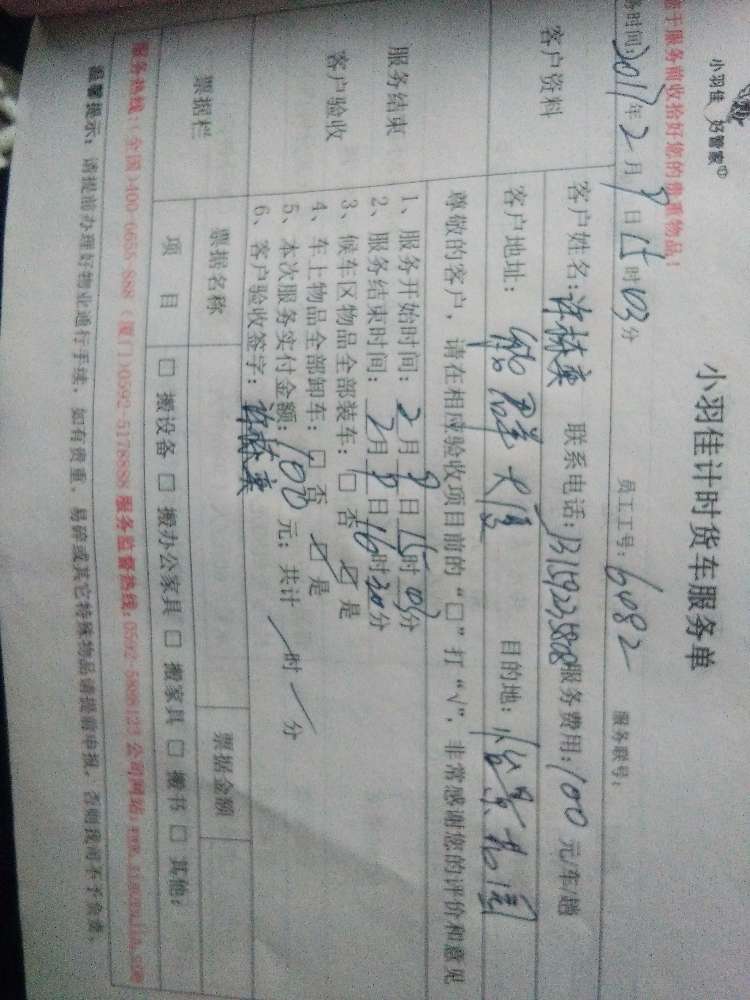 小羽佳 好管家
小羽佳计时货车服务单
于服务前收拾好您的贵重物品！
务时间：2017年2月9日15时03分 员工工号：6082 服务联号：
客户资料
客户姓名：许赫奕 联系电话：13159235808 服务费用：100元/车/趟
客户地址：能群大厦 目的地：怡景花园
尊敬的客户，请在相应验收项目前的“□”打“√”，非常感谢您的评价和意见
服务结束
客户验收
1、服务开始时间：2月9日15时03分
2、服务结束时间：2月9日16时30分
3、候车区物品全部装车：□ 否 ☑ 是
4、车上物品全部卸车：□ 否 ☑ 是
5、本次服务实付金额：100元；共计 / 时 / 分
6、客户验收签字：许赫奕
票据栏
票据名称 票据金额
项目 □ 搬设备 □ 搬办公家具 □ 搬家具 □ 搬书 □ 其他：
服务热线：(全国)400-6655-888 (厦门)0592-5178888 服务监督热线：0592-5808123 公司网站：www.xiaoyujia.com
温馨提示：请提前办理好物业通行手续，如有贵重、易碎或其它特殊物品请提前申报，否则我司不予负责。